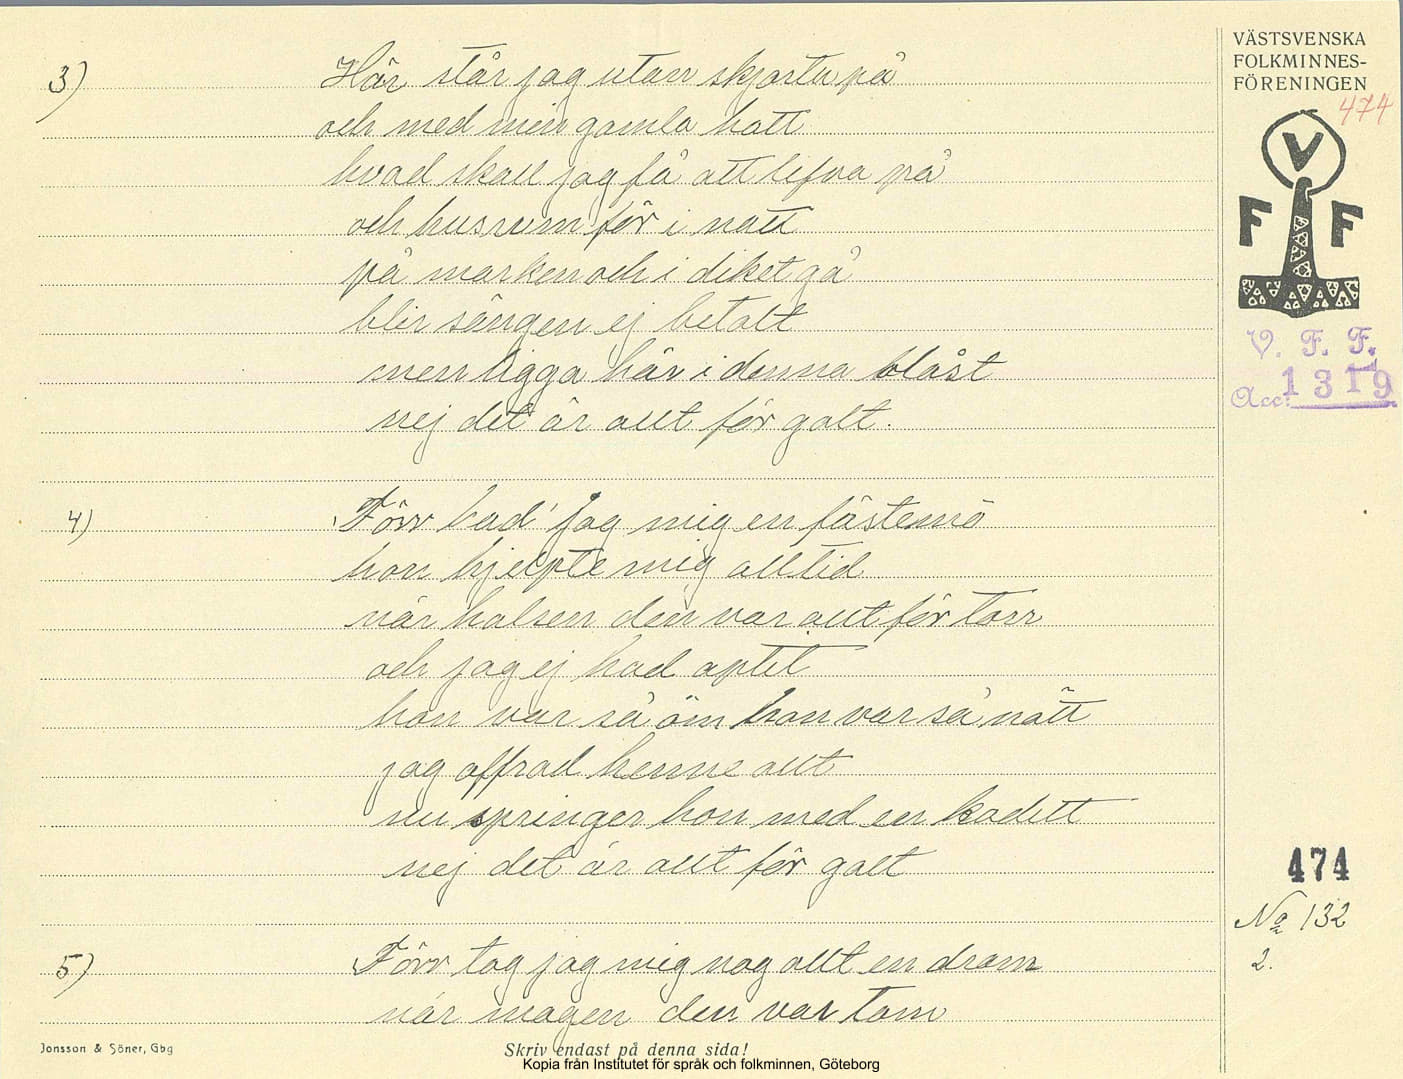 VÄSTSVENSKA
FOLKMINNES-
FÖRENINGEN
474
V
F F
V. F. F.
Acc. 1319
3) Här står jag utan skjorta på
och med min gamla hatt
hvad skall jag få att lefva på
och husrum för i natt
på marken och i diket gå
blir sängen ej betalt
men ligga här i denna blåst
nej det är allt för galt.
4) Förr had' jag mig en fästemö
hon hjelpte mig alltid
när halsen den var allt för torr
och jag ej had aptit
hon var så öm hon var så nätt
jag offrad henne allt
nu springer hon med en kadett
nej det är allt för galt
5) Förr tog jag mig nog allt en dram
när magen den var tom
474
No 132
2.
Jonsson & Söner, Gbg
Skriv endast på denna sida!
Kopia från Institutet för språk och folkminnen, Göteborg